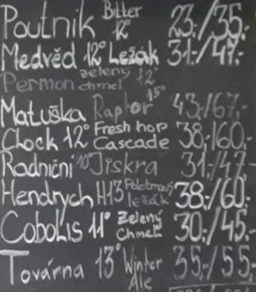 Poutník Bitter 12° 23,-/35,-
Medvěd 12° Ležák 31,-/47,-
Permon zelený chmel 12°
Matuška Raptor 15° 43,-/67,-
Chock 12° Fresh hop Cascade 38,-/60,-
Radniční 10° Jiskra 31,-/47,-
Hendrych H13 Polotmavý ležák 38,-/60,-
Cobolis 11° Zelený Chmel 30,-/45,-
Továrna 13° Winter Ale 35,-/55,-